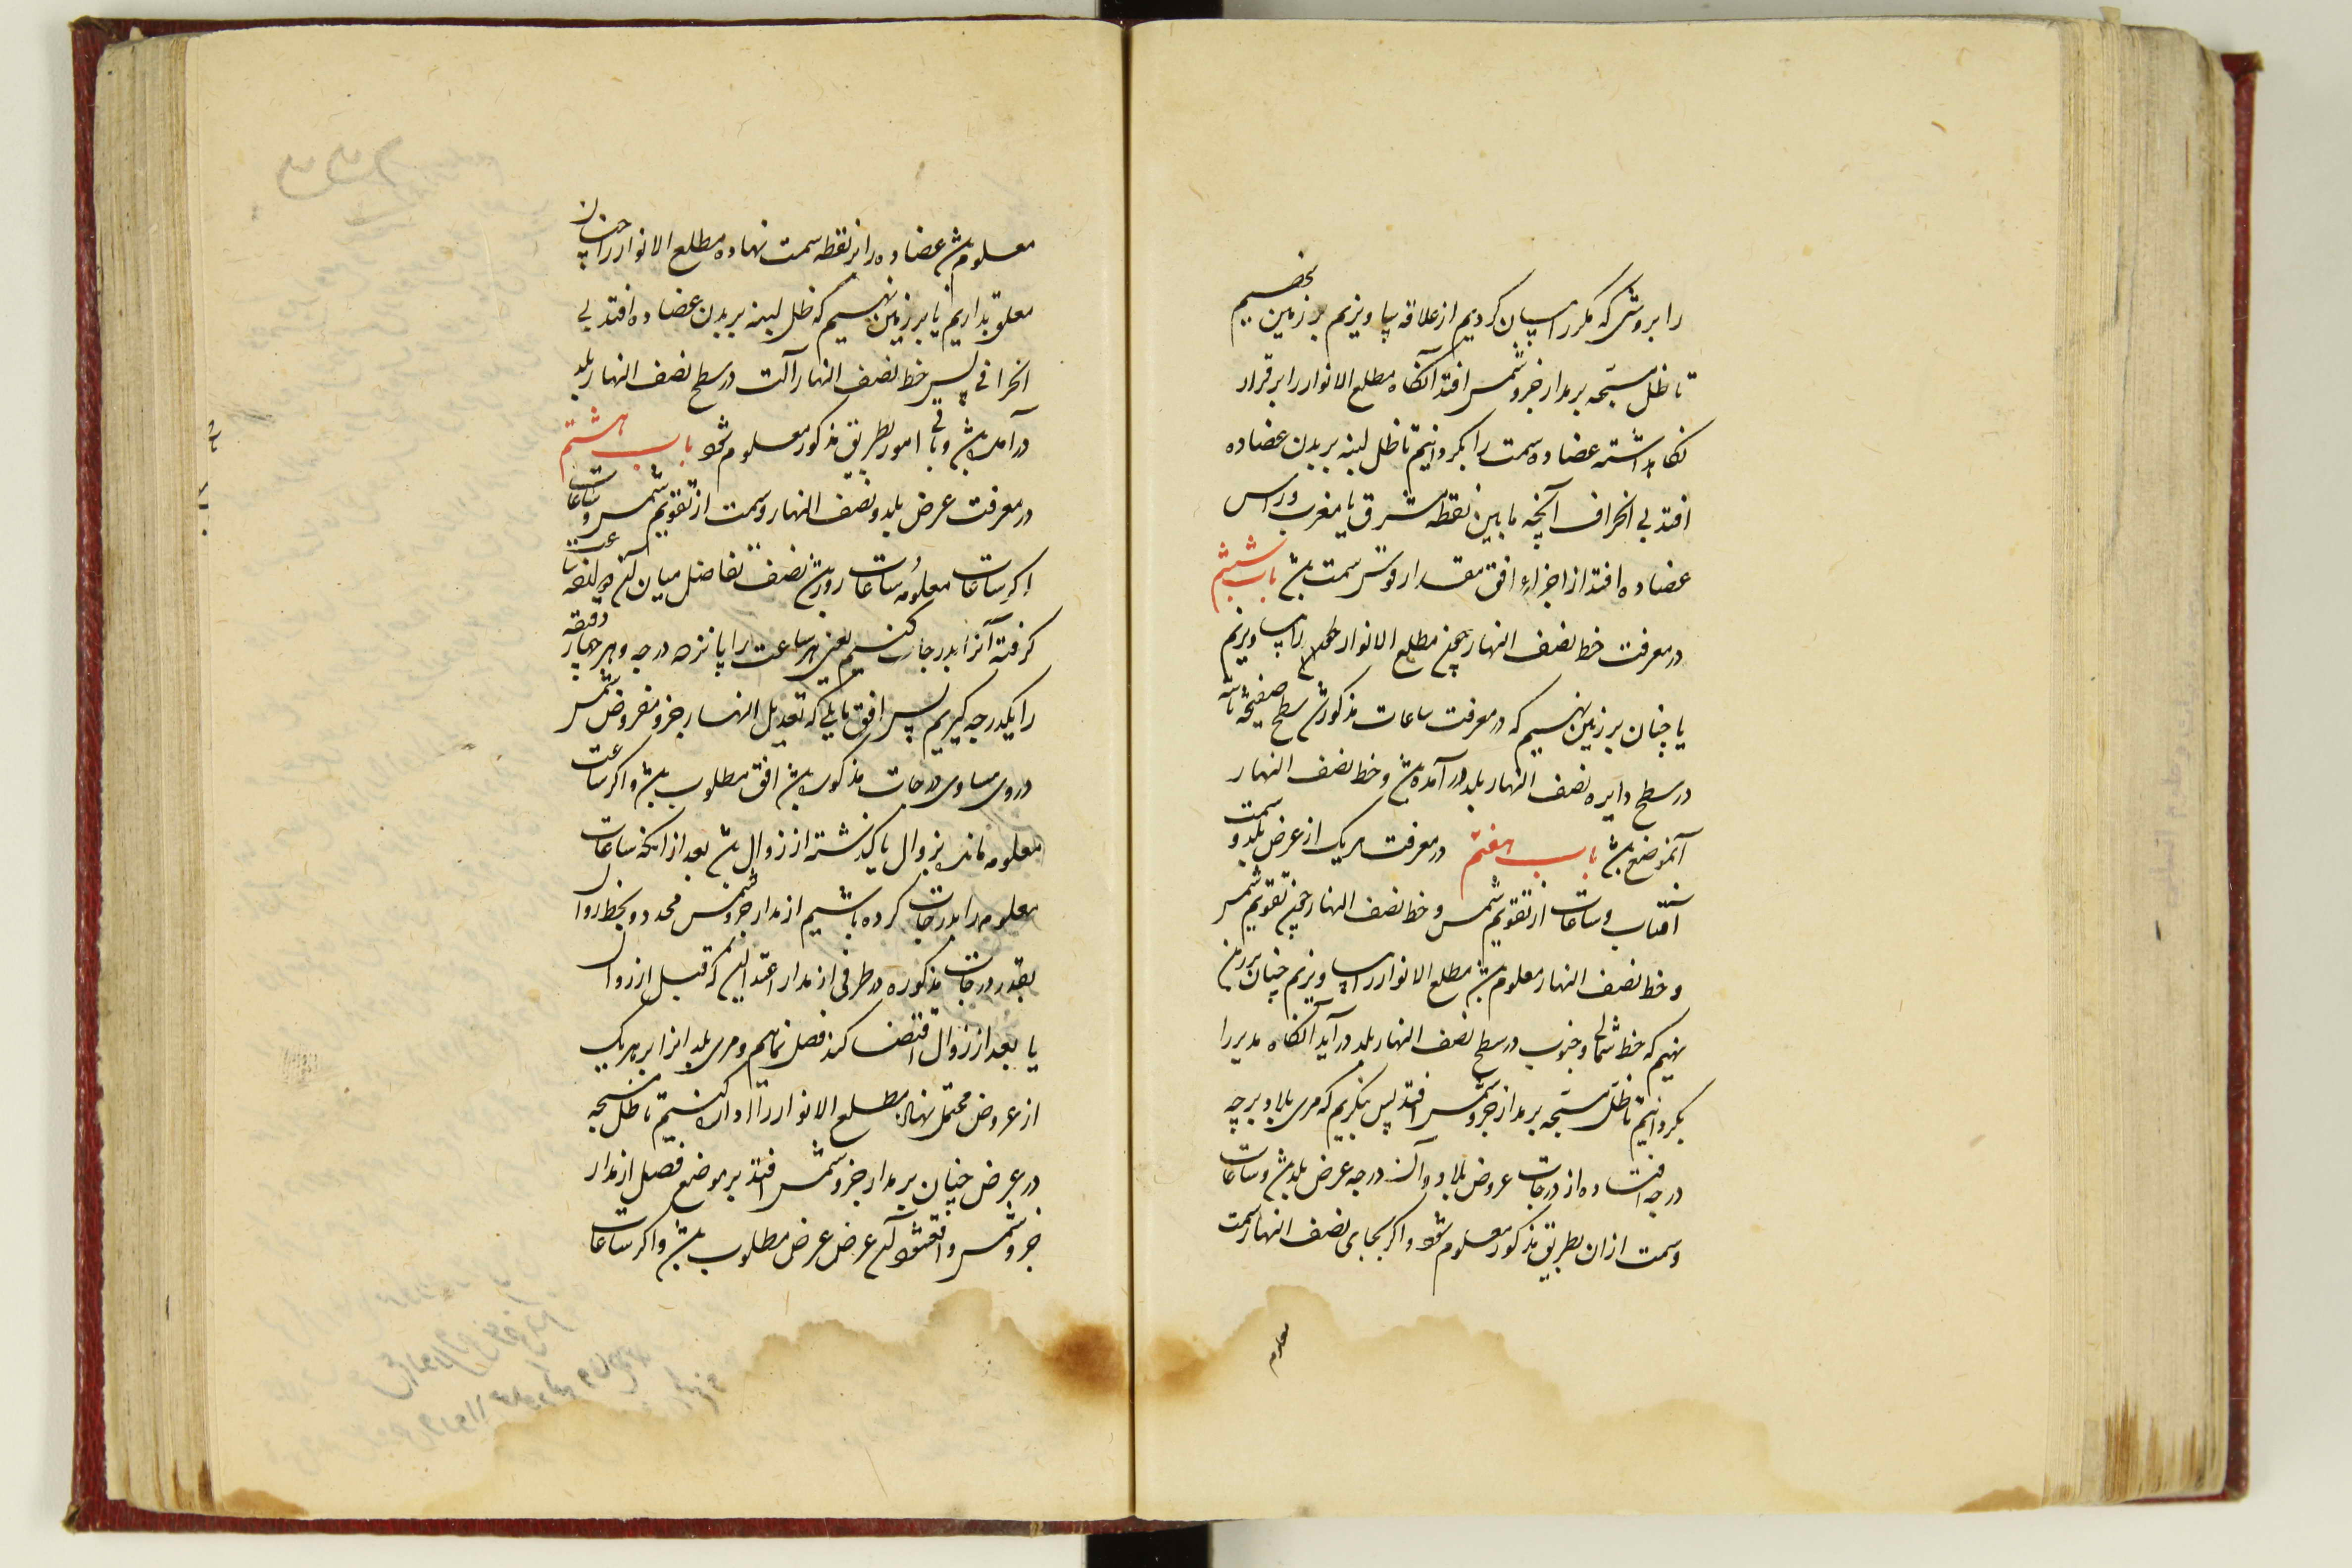 را بروشی که مکرر بیان کردیم از علاقه بیاویزیم بر زمین نهیم
تا ظل مسبّحه بر مدار جزو شمس افتد آنگاه مطلع الانوار را برقرار
نگاهداشته عضاده سمت را بگردانیم تا ظل لبنه بر بدن عضاده
افتد بی انحراف آنچه ما بین نقطه مشرق یا مغرب و راس
عضاده افتد از اجزاء افق مقدار قوس سمت باشد باب ششم
در معرفت خط نصف النهار چون مطلع الانوار را بیاویزیم
یا چنان بر زمین نهیم که در معرفت ساعات مذکور شد سطح صفیحه ثابته
در سطح دایره نصف النهار بلد در آمده باشد و خط نصف النهار
آنموضع باشد باب هفتم در معرفت هریک از عرض بلد و سمت
آفتاب و ساعات از تقویم شمس و خط نصف النهار چون تقویم شمس
و خط نصف النهار معلوم باشد مطلع الانوار را بیاویزیم چنان بر زمین
نهیم که خط شمال و جنوب در سطح نصف النهار بلد در آید آنگاه مدیر را
بگردانیم تا ظل مسبّحه بر مدار جزو شمس افتد پس بنگریم که مری بلاد بر چه
درجه افتاده از درجات عروض بلاد و آن درجه عرض بلد باشد و ساعات
و سمت ازان بطریق مذکور معلوم شود و اگر بجای نصف النهار سمت
معلوم
معلوم باشد عضاده را بر نقطه سمت نهاده مطلع الانوار را چنان
معلق بداریم یا بر زمین نهیم که ظل لبنه بر بدن عضاده افتد بی
انحرافی پس خط نصف النهار آلت در سطح نصف النهار بلد
در آمده باشد و باقی امور بطریق مذکور معلوم شود باب هشتم
در معرفت عرض بلد و نصف النهار و سمت از تقویم شمس و ساعات
اگر ساعات معلومه ساعات روز باشد نصف تفاضل میان آن و
گرفته آنرا بدرجات کنیم یعنی هر ساعت را پانزده درجه و هر چهار دقیقه
را یکدرجه گیریم پس افق مایلی که تعدیل النهار جزو مفروض شمس
دروی مساوی درجات مذکور باشد افق مطلوب باشد و اگر ساعت
معلومه مانده بزوال یا گذشته از زوال باشد بعد از آنکه ساعات
معلوم را بدرجات کرده باشیم از مدار جزو شمس محدود بخط زوال
بقدر درجات مذکوره در طرفی از مدار اعتدالین که قبل از زوال
یا بعد از زوال اقتضا کند فصل نماییم و مری بلد آنرا بر هریک
از عروض محتمل نهاده مطلع الانوار را کنیم تا ظل مسبحه
در عرض چنان بر مدار جزو شمس افتد بر موضع فصل از مدار
جزو شمس واقع شود آن عرض عرض مطلوب باشد و اگر ساعات